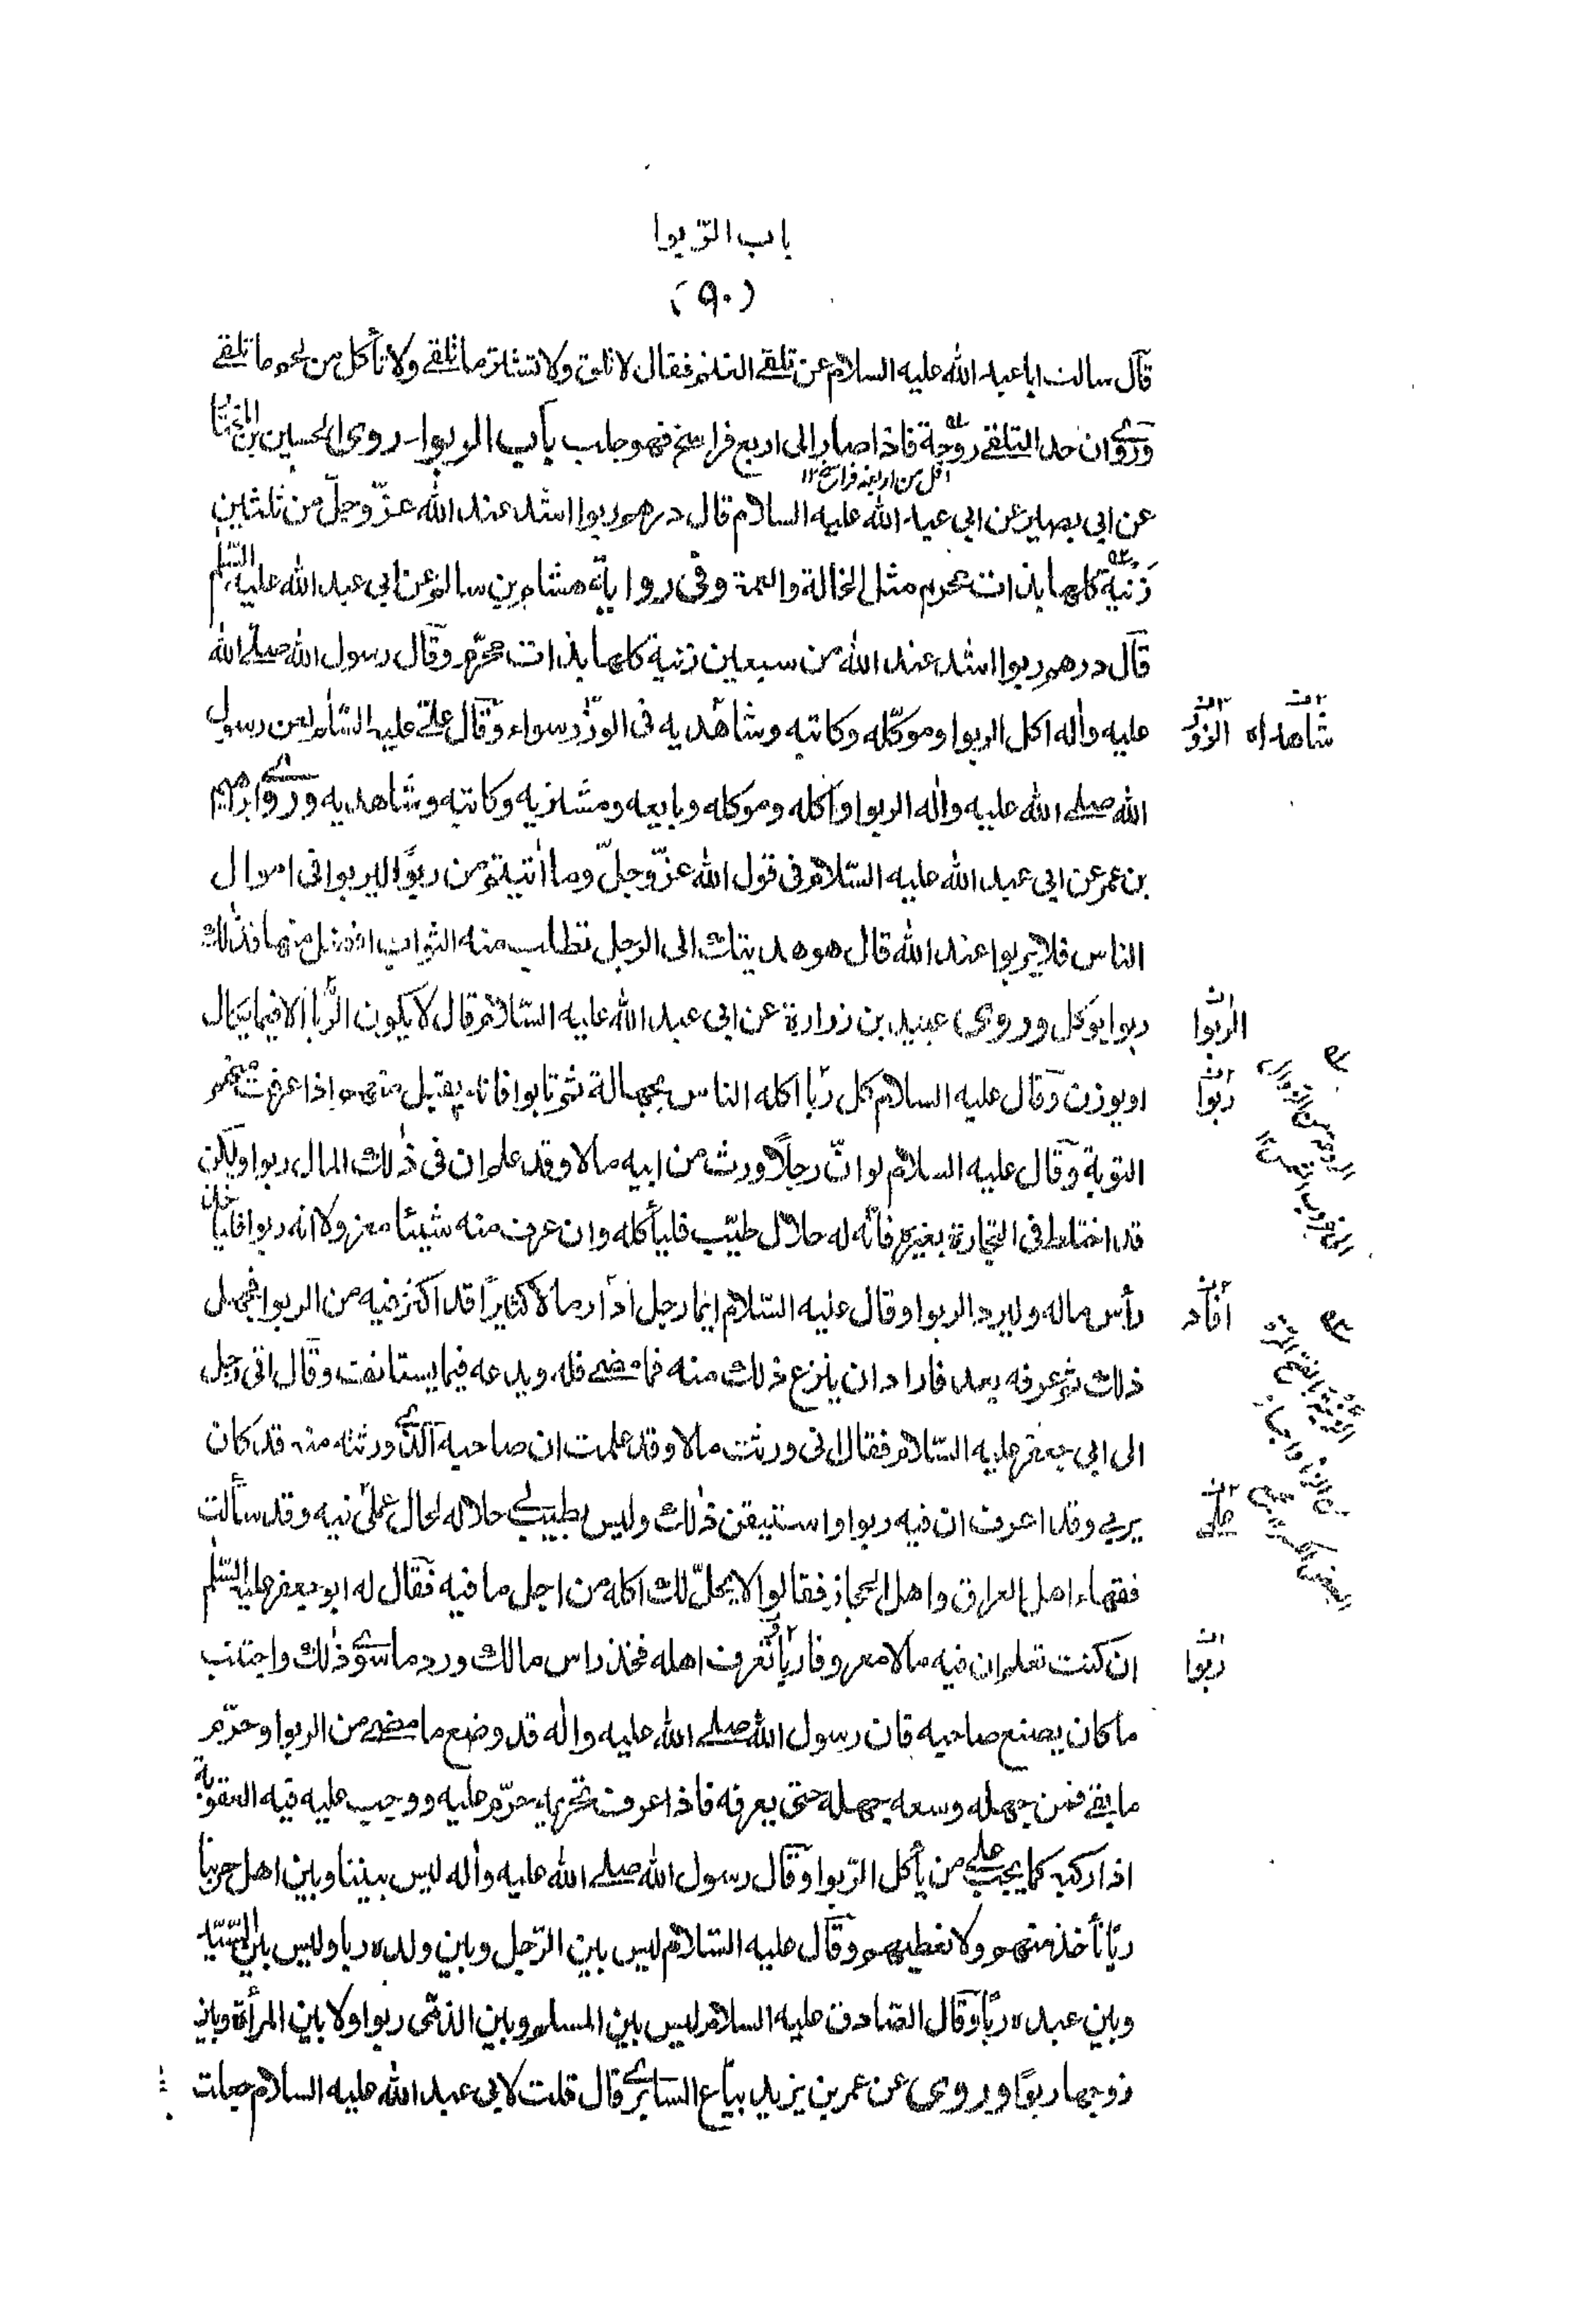 باب الرّبوا
(٩٠)
قال سالت ابا عبد الله عليه السلام عن تلقي الغنم فقال لا تلق ولا تشتر ما تلقي ولا تأكل من لحم ما تلقي
وروي ان حد التلقي روحة فاذا صار الى اربع فراسخ فهو جلب باب الربوا روى الحسين بن المختار
اقل من اربعة فراسخ ١٢
عن ابي بصير عن ابي عبد الله عليه السلام قال درهم ربوا اشد عند الله عزّ وجلّ من ثلثين
زنية كلها بذات محرم مثل الخالة والعمة وفي رواية هشام بن سالم عن ابي عبد الله عليه السّلم
قال درهم ربوا اشد عند الله من سبعين زنية كلها بذات محرّم وقال رسول الله صلے الله
عليه واله اكل الربوا وموكّله وكاتبه وشاهديه فى الوزر سواء وقال علي عليه السّلام لعن رسول
الله صلے الله عليه واله الربوا واكله وموكله وبايعه ومشتريه وكاتبه وشاهديه وروى ابراهيم
بن عمر عن ابي عبد الله عليه السّلام فى قول الله عزّ وجلّ وما اٰتيتم من ربوًا ليربوا فى اموال
الناس فلا يربوا عند الله قال هو هديتك الى الرجل تطلب منه الثواب افضل منها فذلك
ربوا يوكل وروى عبيد بن زرارة عن ابى عبد الله عليه السّلام قال لا يكون الرّبا الا فيما يكال
او يوزن وقال عليه السلام كل ربّا اكله الناس بجهالة ثم تابوا فانه يقبل منهم اذا عرفت منهم
التوبة وقال عليه السلام لو انّ رجلًا ورث من ابيه مالا وقد علم ان فى ذٰلك المال ربوا ولكن
قد اختلط فى التجارة بغيره فانّه له حلال طيّب فليأكله وان عرف منه شيئا معزولا انه ربوا فليأخذ
رأس ماله وليرد الربوا وقال عليه السّلام ايما رجل ادار مالا كثيرًا قد اكثر فيه من الربوا فجهل
ذلك ثم عرفه بعد فاراد ان ينزع ذلك منه فما مضے فله ويدعه فيما يستانف وقال اتى رجل
الى ابي جعفر عليه السّلام فقال انى ورثت مالا وقد علمت ان صاحبه الذي ورثته منه قد كان
يربي وقد اعرف ان فيه ربوا واستيقن ذٰلك وليس بطيب لے حلاله لحال علمى فيه وقد سألت
فقهاء اهل العراق واهل الحجاز فقالوا لا يحلّ لك اكله من اجل ما فيه فقال له ابو جعفر عليه السّلم
ان كنت تعلم ان فيه مالا معروفا ربًا وتعرف اهله فخذ راس مالك ورد ما سوى ذٰلك واجتنب
ما كان يصنع صاحبه فان رسول الله صلے الله عليه واله قد وضع ما مضے من الربوا وحرّم
ما بقے فمن جهله وسعه جهله حتى يعرفه فاذا عرف تحريمه حرّم عليه ووجب عليه فيه العقوبة
اذا ركبه كما يجب علے من يأكل الرّبوا وقال رسول الله صلے الله عليه واله ليس بيننا وبين اهل حربنا
ربًا نأخذ منهم ولا نعطيهم وقال عليه السّلام ليس بين الرّجل وبين ولده ربا وليس بين السّيّد
وبين عبده ربًا وقال الصّادق عليه السلام ليس بين المسلم وبين الذمّى ربوا ولا بين المرأة وبين
زوجها ربوًا وروى عن عمر بن يزيد بيّاع السابرى قال قلت لابي عبد الله عليه السلام جعلت
شاهداه الوزر
الربوا
ربوا
الروحة من الزوال
الى غروب الشمس ١٢
افاد
علي
ربوا